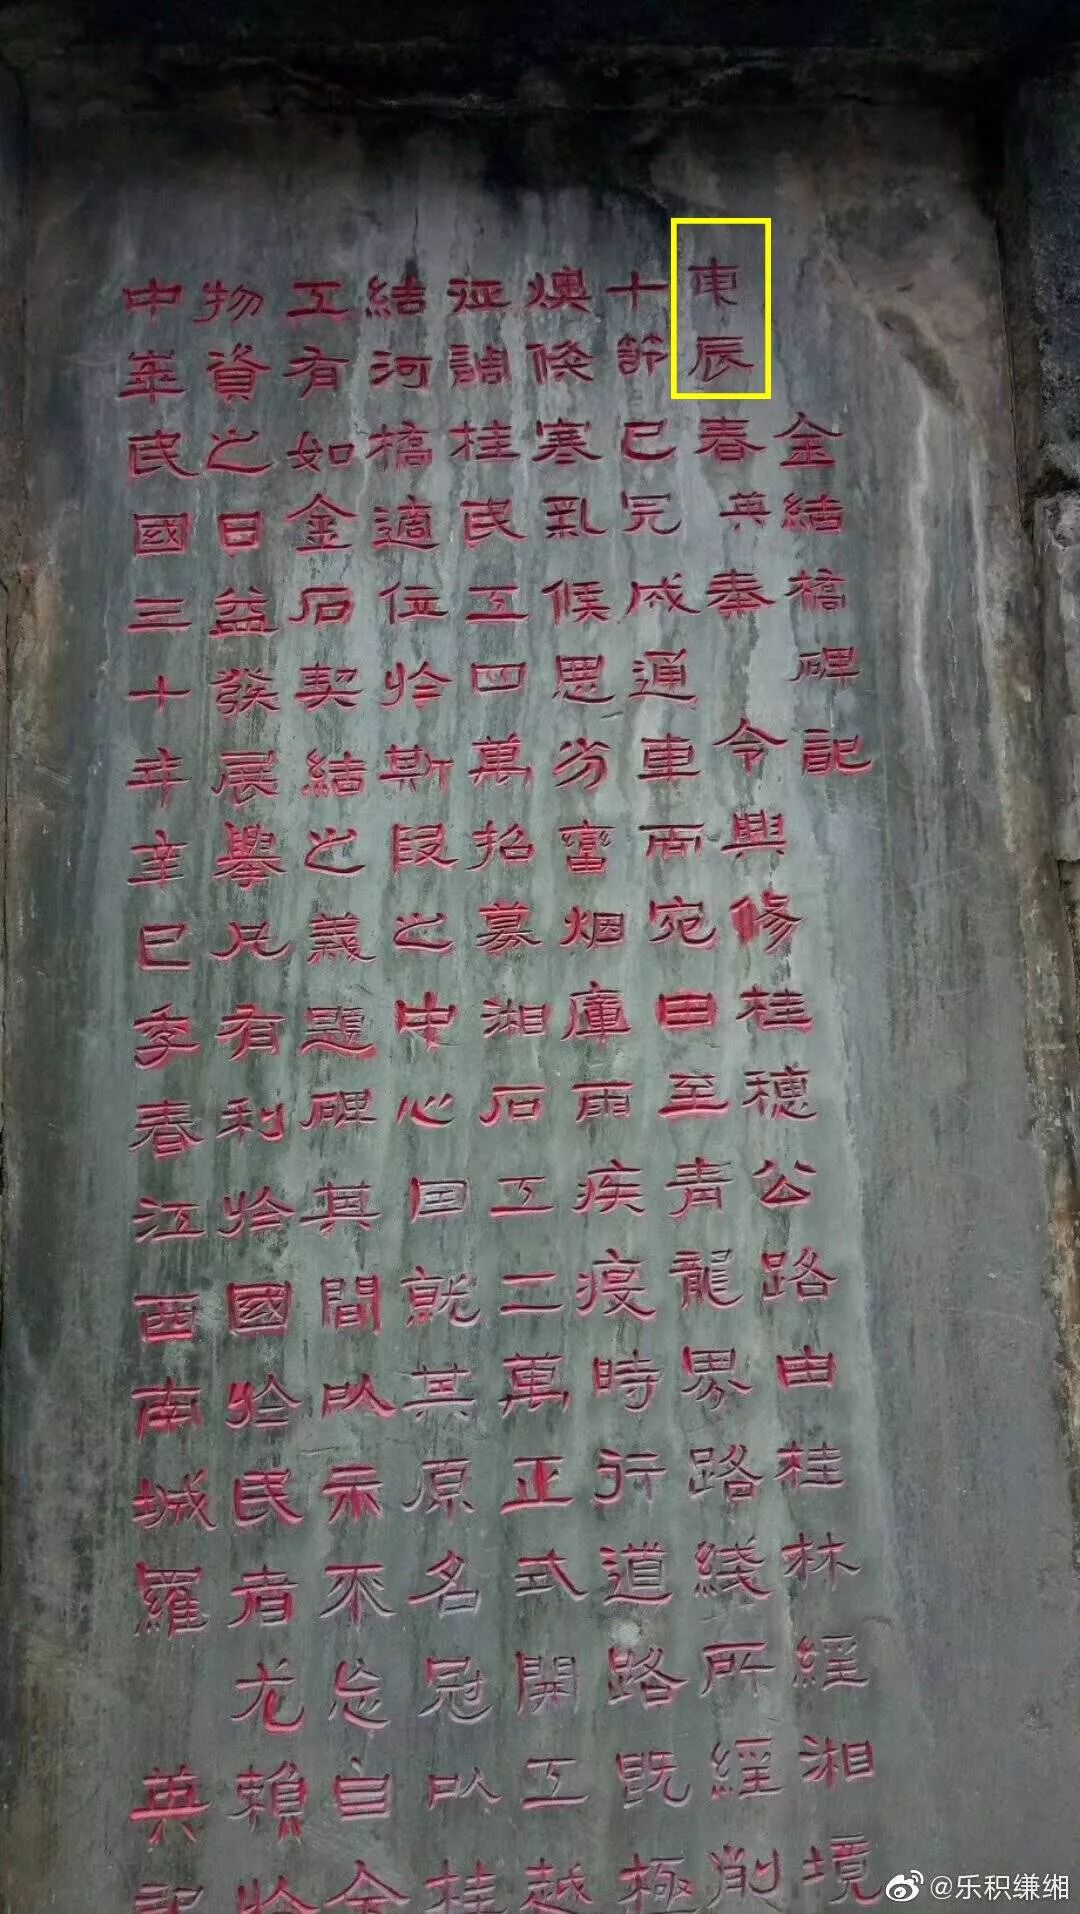 金結橋碑記
東辰春英奉 令興修桂穗公路由桂林經湘境
十節已完成通車而宛田至青龍界路綫所經削
燠倏寒乱候思劣蠻烟庫雨疾疫時行道路既極
征調桂民工四萬招募湘石工二萬正式開工越
結河橋適位於斯段之中心因就其原名冠以桂
工有如金石契結之義題碑其間以示不忘自今
物資之日益發展舉凡有利於國於民者尤賴於
中華民國三十年辛巳季春江西南城羅 英記
@乐积缣缃